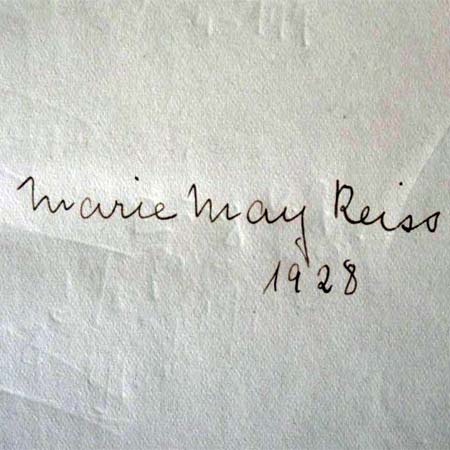 Marie May Reiss
1928